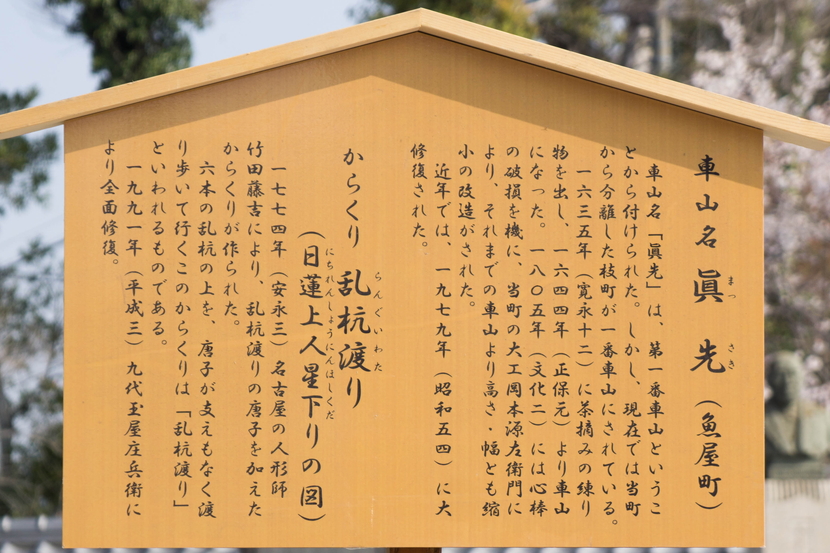 車山名 眞先(魚屋町)
まっさき
車山名「眞先」は、第一番車山というこ
とから付けられた。しかし、現在では当町
から分離した枝町が一番車山にされている。
一六三五年(寛永十二)に茶摘みの練り
物を出し、一六四四年(正保元)より車山
になった。一八〇五年(文化二)には心棒
の破損を機に、当町の大工岡本源左衛門に
より、それまでの車山より高さ・幅とも縮
小の改造がされた。
近年では、一九七九年(昭和五四)に大
修復された。
からくり 乱杭渡り
らんぐいわた
(日蓮上人星下りの図)
にちれんしょうにんほしくだ
一七七四年(安永三)名古屋の人形師
竹田藤吉により、乱杭渡りの唐子を加えた
からくりが作られた。
六本の乱杭の上を、唐子が支えもなく渡
り歩いて行くこのからくりは「乱杭渡り」
といわれるものである。
一九九一年(平成三)九代玉屋庄兵衛に
より全面修復。